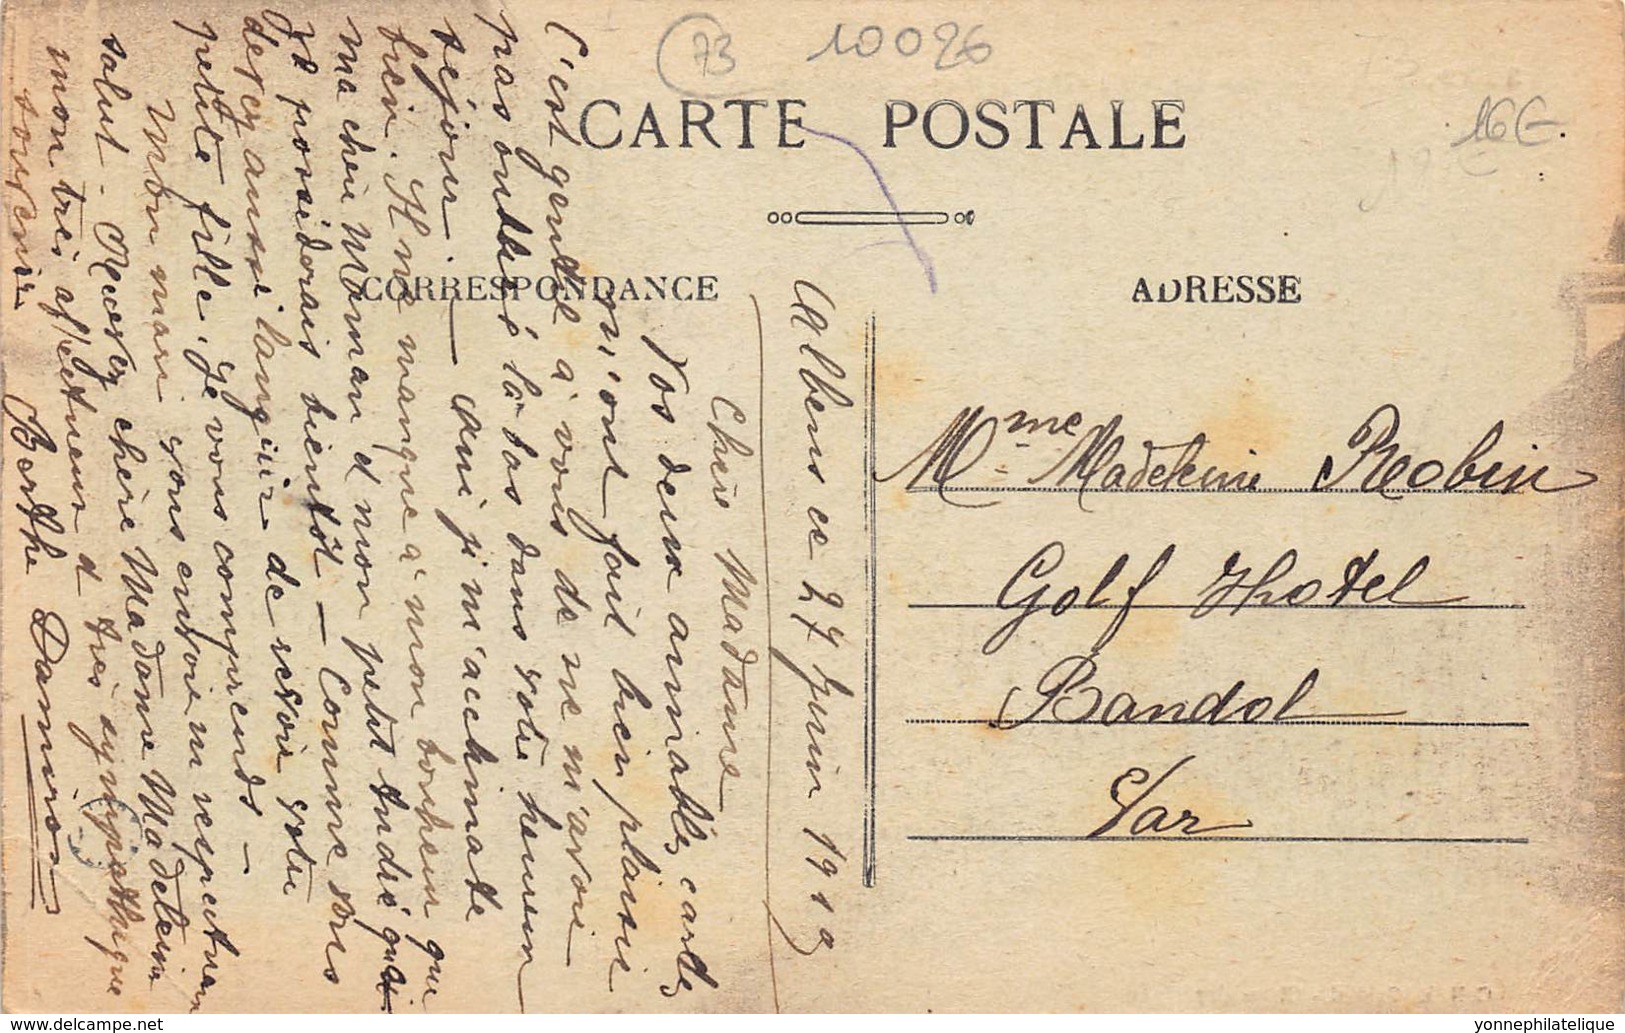 73
10026
16€
CARTE POSTALE
CORRESPONDANCE
ADRESSE
Albens ce 27 Juin 1919
Chère Madame
Vos deux aimables cartes
m'ont fait bien plaisir
C'est gentil à vous de ne m'avoir
pas oubliée là bas dans votre heureux
séjour — Oui je m'acclimate
bien. Il ne manque à mon bonheur que
ma chère Maman et mon petit André que
je possèderais bientôt — Comme vous
devez aussi languir de revoir votre
petite fille. Je vous comprends —
Mon mari vous envoie un respectueux
salut. Recevez chère Madame Madeleine
mon très affectueux et très sympathique
souvenir
Berthe Damiron
Mme Madeleine Robin
Golf Hotel
Bandol
Var
www.delcampe.net
yonnephilatelique